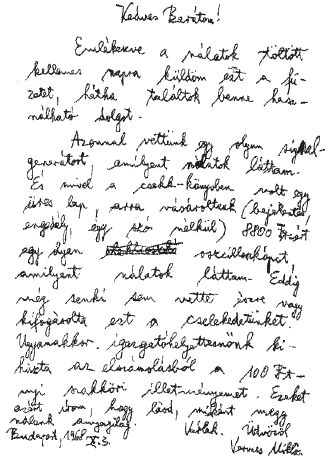 Kedves Barátom!
Emlékezve a nálatok töltött
kellemes napra küldöm ezt a fü-
zetet, hátha találtok benne hasz-
nálható dolgot.
Azonnal vettünk egy olyan signal-
generátort, amilyent nálatok láttam.
És mivel a csekk-könyvben volt egy
üres lap, arra vásároltak (bejelentés,
engedély, egy szó nélkül) 8800 Ft-ért
egy ilyen oszcilloszkópot
amilyent nálatok láttam. Eddig
még senki sem vette észre vagy
kifogásolta ezt a cselekedetünket.
Ugyanakkor igazgatóhelyettesnőnk ki-
húzta az elszámolásból a 100 Ft-
nyi szakköri illetményemet. Ezeket
azért írom, hogy lásd, miként megy
nálunk anyagilag. Üdvözöl
Budapest, 1968 X.3. Vermes Miklós